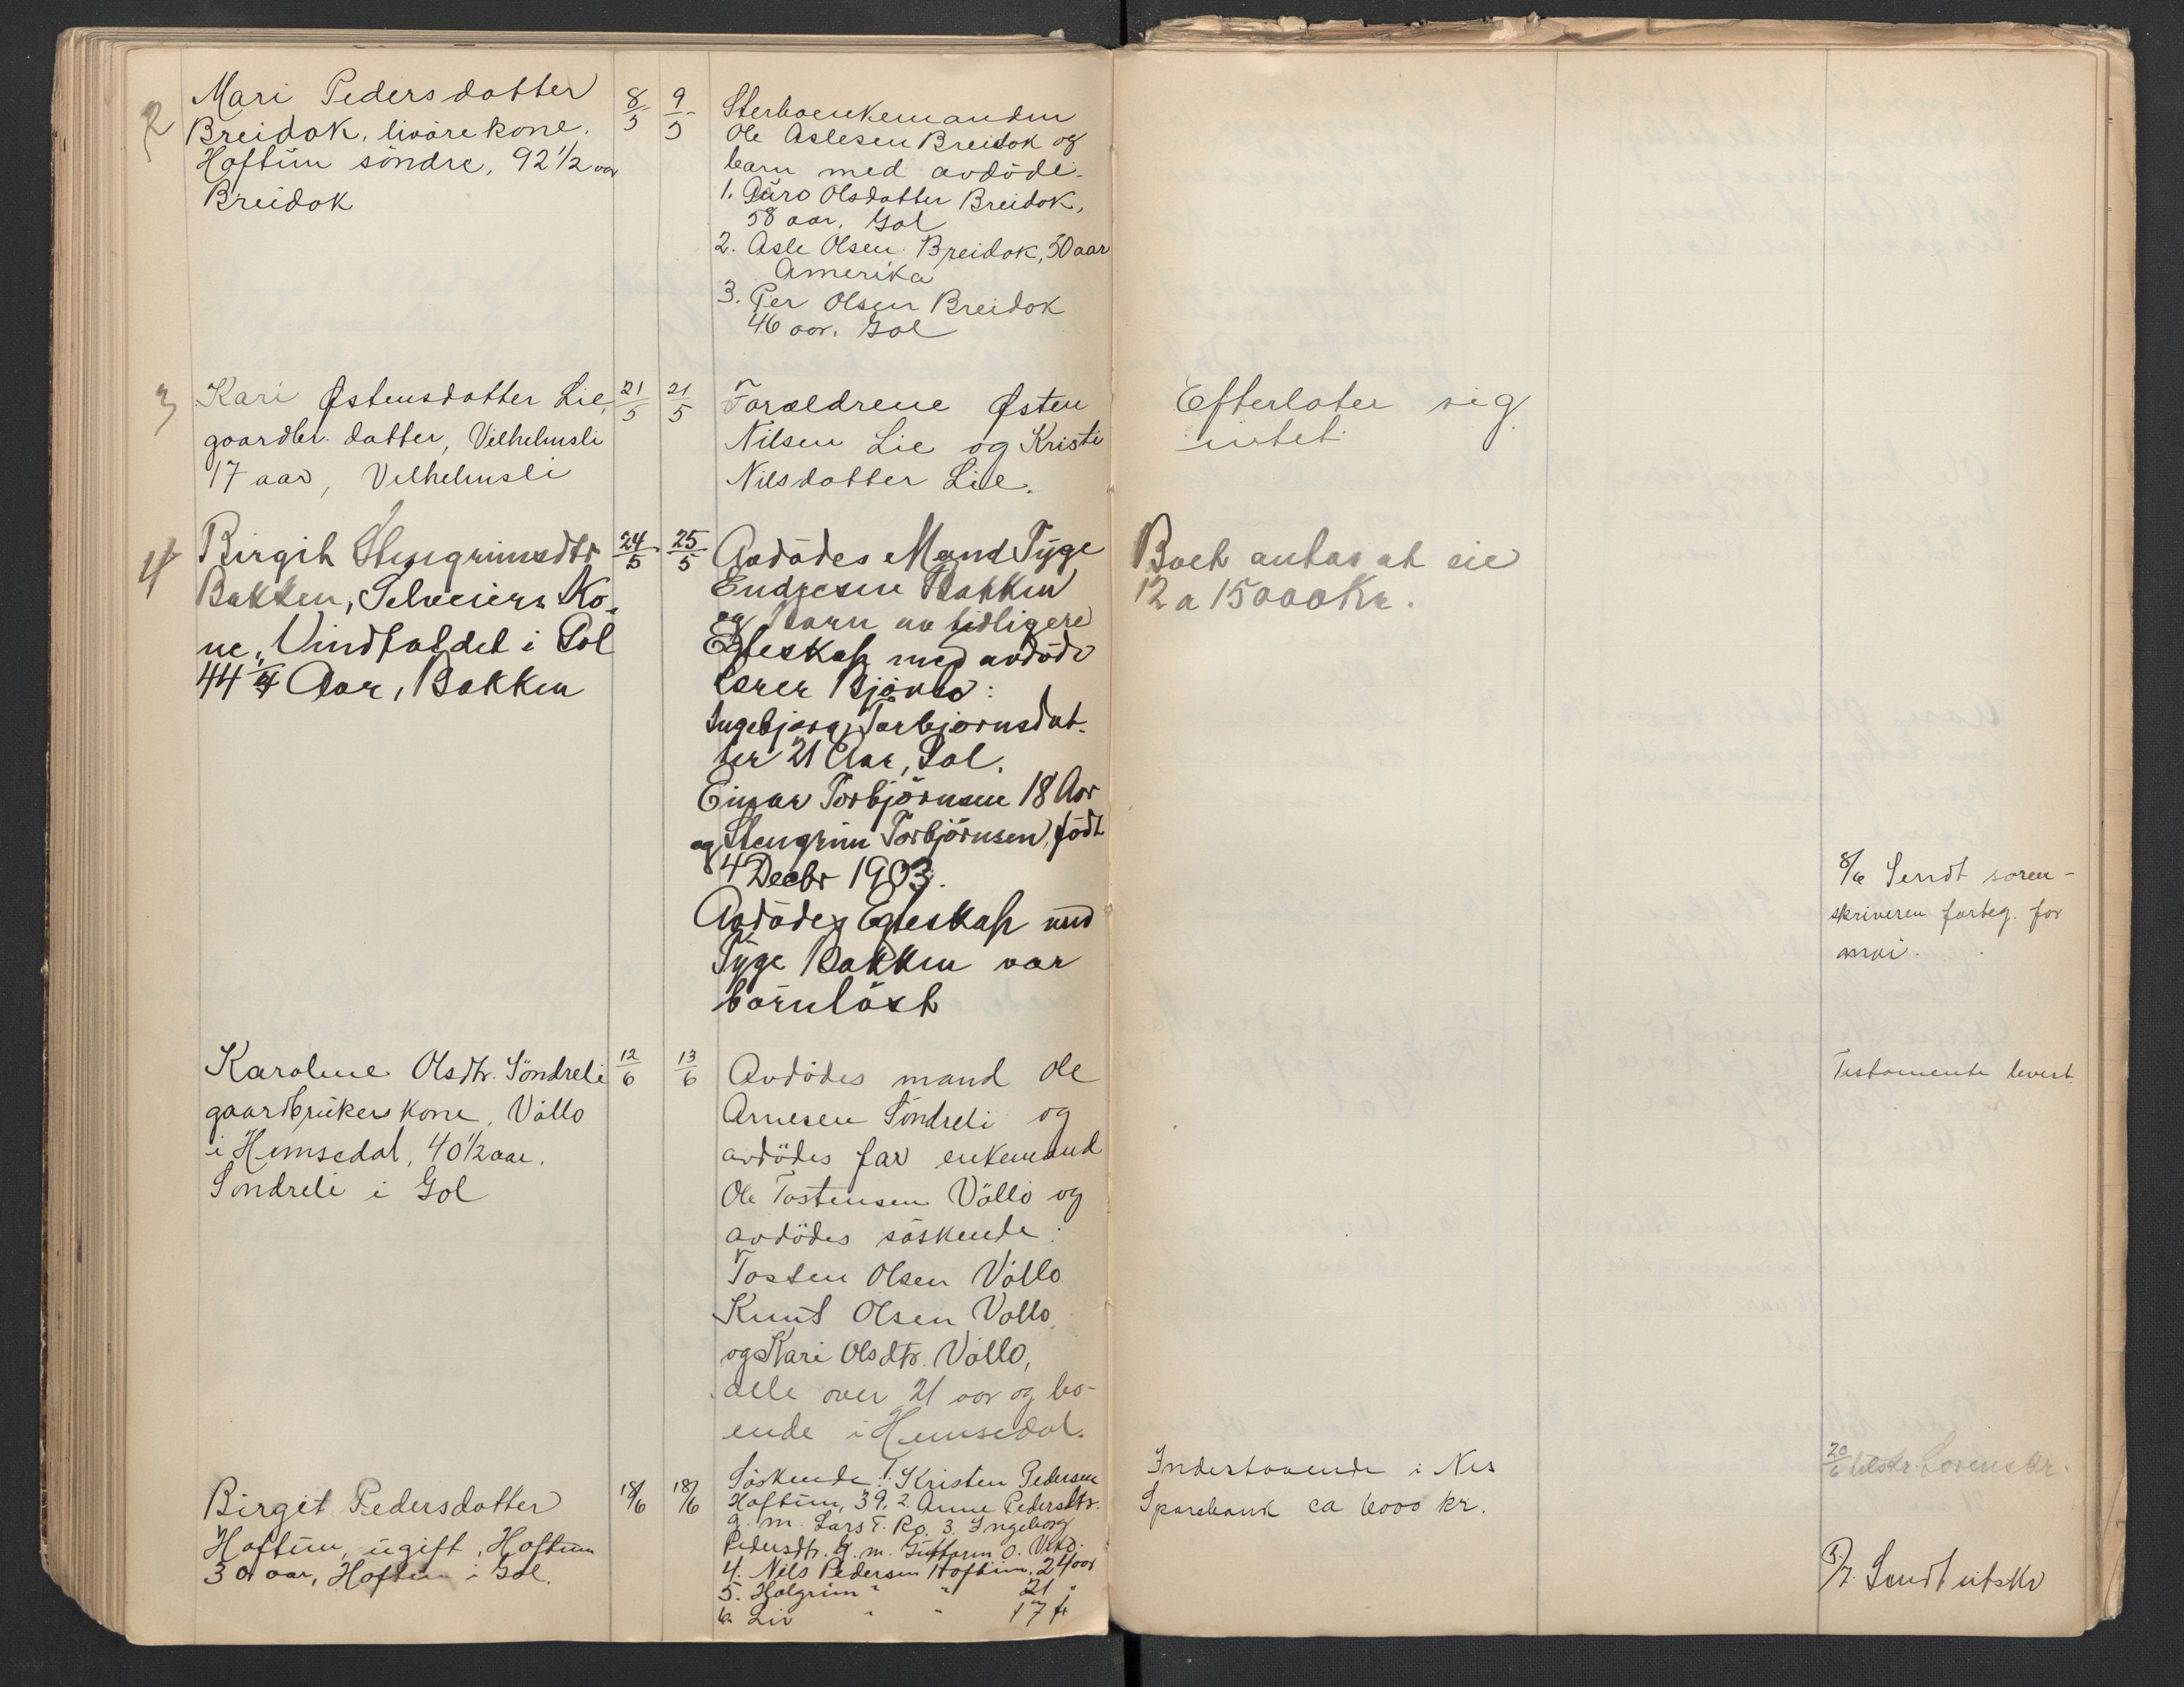 2
Mari Pedersdatter
Breidok, livörekone.
Haftün söndre, 92 1/2 aar
Breidok
8/5
9/5
Sterboenkemanden
Ole Aslesen Breidok og
barn med avdöde.
1. Guro Olsdatter Breidok,
58 aar, Gol
2. Asle Olsen Breidok, 50 aar
Amerika
3. Per Olsen Breidok
46 aar. Gol
3
Kari Østensdatter Lie,
gaardbr. datter, Vilhelmsli
17 aar, Vilhelmsli
21/5
21/5
Foreldrene Østen
Nilsen Lie og Kristi
Nilsdatter Lie.
Efterlater sig
intet.
4
Birgit Stengrimsdtr
Bakken, Selveiers Ko-
ne, Vindhaldet i Gol
44 1/4 Aar, Bakken
24/5
25/5
Avdödes Mand Tyge
Endresen Bakken
og Barn av tidligere
Egteskap med avdöde
Ingebjørg Torbjørnsdat-
ter 21 Aar, Gol.
Einar Torbjörnsen 18 Aar
og Stengrim Torbjörnsen, födt
4 Decbr 1903.
Avdödes Egteskap med
Tyge Bakken var
barnlöst
Boet antas at eie
12 a 15000 Kr.
8/6 Sendt soren-
skriveren forteg. for
mai.
Karoline Olsdtr. Söndreli
gaardbrükers kone, Völlo
i Hemsedal, 40 1/2 aar.
Söndreli i Gol
12/6
13/6
Avdödes mand Ole
Arnesen Söndreli og
avdödes far enkemand
Ole Tostensen Völlo og
avdödes söskende:
Tosten Olsen Völlo
Knut Olsen Völlo
og Kari Olsdtr. Völlo,
alle over 21 aar og bo-
ende i Hemsedal.
Testamente levert.
Birgit Pedersdatter
Haftün, ügift, Haftün
30 aar, Haftün i Gol.
18/6
18/6
Söskende: 1. Kristen Pedersen
Haftün, 39, 2. Anne Pedersdtr.
g. m. Lars T. Ro. 3. Ingeborg
Pedersdtr. g. m. Guttorm O.
4. Nils Pedersen Haftün, 24 aar
5. Halgrim " " 21 "
6. Liv " " 17 "
Indestaaende i Nes
Sparebank ca 6000 kr.
20/6 tilskr. Sorenskr.
5/7. Sendt utskr